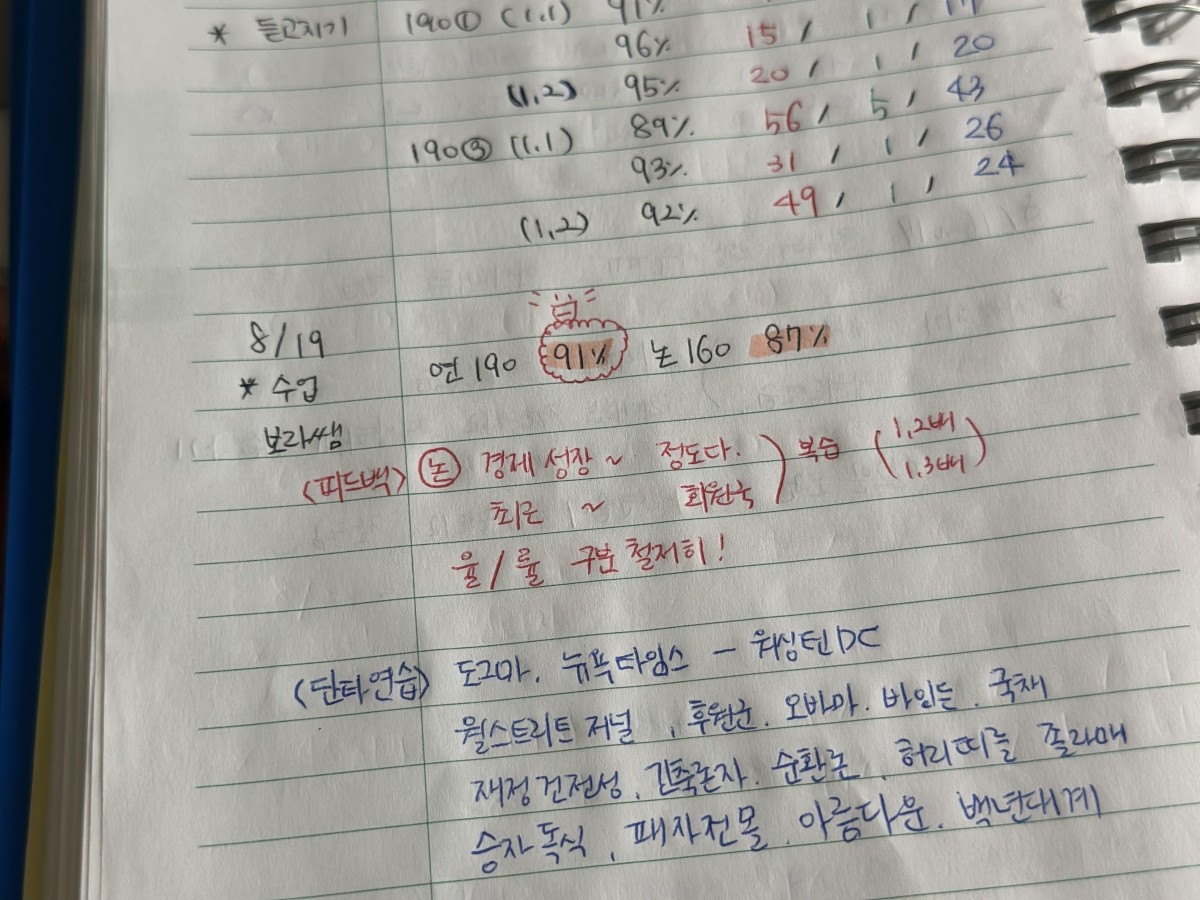 * 듣고치기 190① (1.1) 91% 1 / 17
96% 15 / 1 / 20
(1.2) 95% 20 / 1 / 43
190③ (1.1) 89% 56 / 5 / 26
93% 31 / 1 / 24
(1.2) 92% 49 / 1 /
8/19
* 수업 연 190 91% 논 160 87%
보라쌤
<피드백> 논 경제 성장 ~ 정도다. 복습 (1.2배
최근 ~ 회원국 1.3배)
율/률 구분 철저히!
<단타연습> 도그마. 뉴욕타임스 - 워싱턴DC
월스트리트 저널, 후원군. 오바마. 바이든. 국채
재정건전성, 긴축론자. 순환론, 허리띠를 졸라매
승자독식, 패자전몰. 아름다운. 백년대계